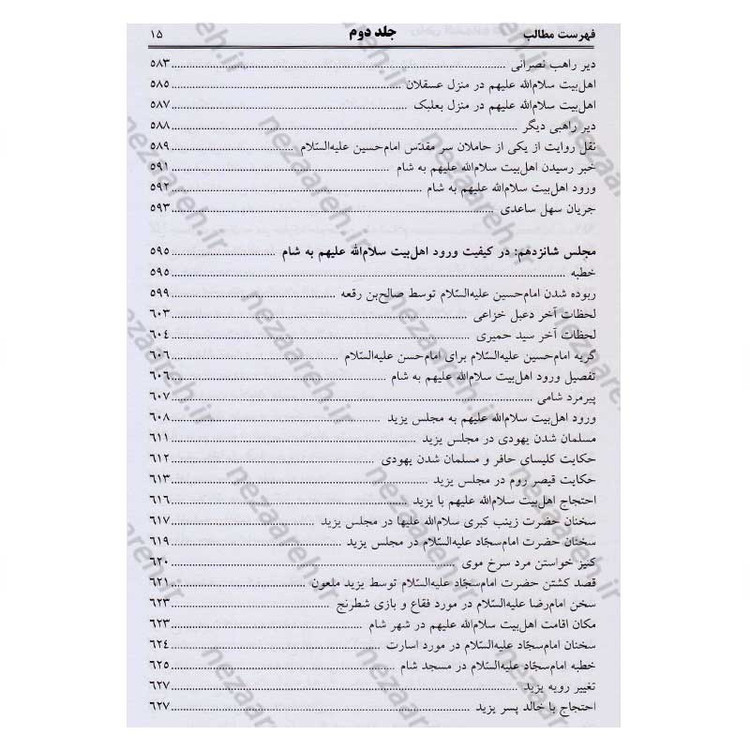 فهرست مطالب جلد دوم ۱۵
دیر راهب نصرانی ۵۸۳
اهل‌بیت سلام‌الله علیهم در منزل عسقلان ۵۸۵
اهل‌بیت سلام‌الله علیهم در منزل بعلبک ۵۸۷
دیر راهبی دیگر ۵۸۸
نقل روایت از یکی از حاملان سر مقدّس امام‌حسین علیه‌السّلام ۵۸۹
خبر رسیدن اهل‌بیت سلام‌الله علیهم به شام ۵۹۱
ورود اهل‌بیت سلام‌الله علیهم به شام ۵۹۲
جریان سهل ساعدی ۵۹۳
مجلس شانزدهم: در کیفیت ورود اهل‌بیت سلام‌الله علیهم به شام ۵۹۵
خطبه ۵۹۵
ربوده شدن امام‌حسین علیه‌السّلام توسط صالح‌بن رقعه ۵۹۹
لحظات آخر دعبل خزاعی ۶۰۳
لحظات آخر سید حمیری ۶۰۴
گریه امام‌حسین علیه‌السّلام برای امام‌حسن علیه‌السّلام ۶۰۶
تفصیل ورود اهل‌بیت سلام‌الله علیهم به شام ۶۰۶
پیرمرد شامی ۶۰۷
ورود اهل‌بیت سلام‌الله علیهم به مجلس یزید ۶۰۸
مسلمان شدن یهودی در مجلس یزید ۶۱۱
حکایت کلیسای حافر و مسلمان شدن یهودی ۶۱۲
حکایت قیصر روم در مجلس یزید ۶۱۳
احتجاج اهل‌بیت سلام‌الله علیهم با یزید ۶۱۶
سخنان حضرت زینب کبری سلام‌الله علیها در مجلس یزید ۶۱۷
سخنان حضرت امام‌سجّاد علیه‌السّلام در مجلس یزید ۶۱۹
کنیز خواستن مرد سرخ موی ۶۲۰
قصد کشتن حضرت امام‌سجّاد علیه‌السّلام توسط یزید ملعون ۶۲۱
سخن امام‌رضا علیه‌السّلام در مورد فقاع و بازی شطرنج ۶۲۳
مکان اقامت اهل‌بیت سلام‌الله علیهم در شهر شام ۶۲۳
سخنان امام‌سجّاد علیه‌السّلام در مورد اسارت ۶۲۴
خطبه امام‌سجّاد علیه‌السّلام در مسجد شام ۶۲۵
تغییر رویه یزید ۶۲۷
احتجاج با خالد پسر یزید ۶۲۷
nezaareh.ir